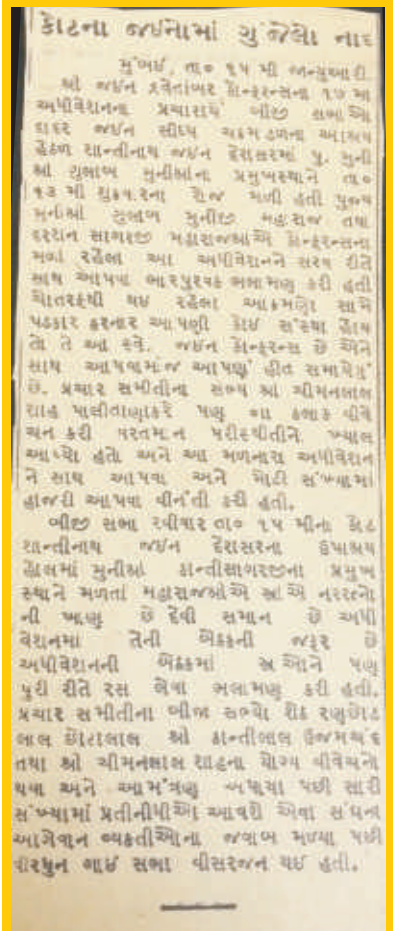 કોટના જઈનોમાં ગુંજેલો નાદ
મુંબઈ, તા૦ ૧૫ મી જાન્યુઆરી.
શ્રી જઈન શ્વેતાંબર કોન્ફરન્સના ૧૭ મા
અધીવેશનના પ્રચારાર્થે બીજી સભાઓ
દાદર જઈન સીધ્ધ ચક્રમંડળના આશ્રય
હેઠળ શાન્તીનાથ જઈન દેરાસરમાં પુ. મુની
શ્રી ગુલાબ મુનીશ્રીના પ્રમુખસ્થાને તા૦
૧૩ મી શુક્રવારના રોજ મળી હતી પુજ્ય
મુનીશ્રી ગુલાબ મુનીજી મહારાજ તથા
દરશન સાગરજી મહારાજશ્રીએ કોન્ફરન્સના
મળી રહેલા આ અધીવેશનને સરવ રીતે
સાથ આપવા ભારપુરવક ભલામણ કરી હતી
ચોતરફથી થઈ રહેલા આક્રમણો સામે
પડકાર કરનાર આપણી કોઈ સંસ્થા હોય
તો તે આ શ્વે. જઈન કોન્ફરન્સ છે એને
સાથ આપવામાંજ આપણું હીત સમાયેલું
છે. પ્રચાર સમીતીના સભ્ય શ્રી ચીમનલાલ
શાહ પાલીતાણાકરે પણ ૦ાા કલાક વીવે
ચન કરી વરતમાન પરીસ્થીતીને ખ્યાલ
આપ્યો હતો અને આ મળનારા અધીવેશન
ને સાથ આપવા અને મોટી સંખ્યામાં
હાજરી આપવા વીનંતી કરી હતી.
બીજી સભા રવીવાર તા૦ ૧૫ મીના કોટ
શાન્તીનાથ જઈન દેરાસરના ઉપાશ્રય
હોલમાં મુનીશ્રી કાન્તીસાગરજીના પ્રમુખ
સ્થાને મળતાં મહારાજશ્રીએ સ્ત્રીએ નરરત્નો
ની ખાણ છે દેવી સમાન છે અધી
વેશનમાં તેની બેઠકની જરૂર છે
અધીવેશનની બેઠકમાં સ્ત્રીઓને પણ
પુરી રીતે રસ લેવા ભલામણ કરી હતી.
પ્રચાર સમીતીના બીજા સભ્યો શેઠ રણછોડ
લાલ છોટાલાલ શ્રી કાન્તીલાલ ઉજમચંદ
તથા શ્રી ચીમનલાલ શાહના યોગ્ય વીવેચનો
થયા અને આમંત્રણ અપાયા પછી સારી
સંખ્યામાં પ્રતીનીધીઓ આવશે એવા સંઘના
આગેવાન વ્યક્તીઓના જવાબ મળ્યા પછી
વીરધુન ગાઈ સભા વીસરજન થઈ હતી.